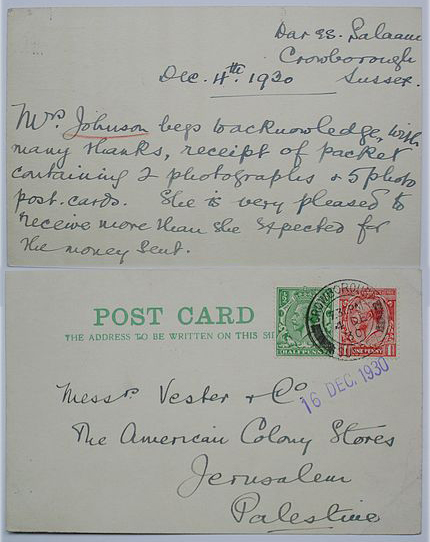 Dar es. Salaam
Crowborough
Dec. 4th 1930 Sussex.
Mrs Johnson begs to acknowledge, with
many thanks, receipt of packet
containing 2 photographs & 5 photo
post-cards. She is very pleased to
receive more than she expected for
the money sent.
POST CARD
THE ADDRESS TO BE WRITTEN ON THIS
HALFPENNY
CROWBOROUGH
16 DEC. 1930
Messrs Vester & Co.
The American Colony Stores
Jerusalem
Palestine